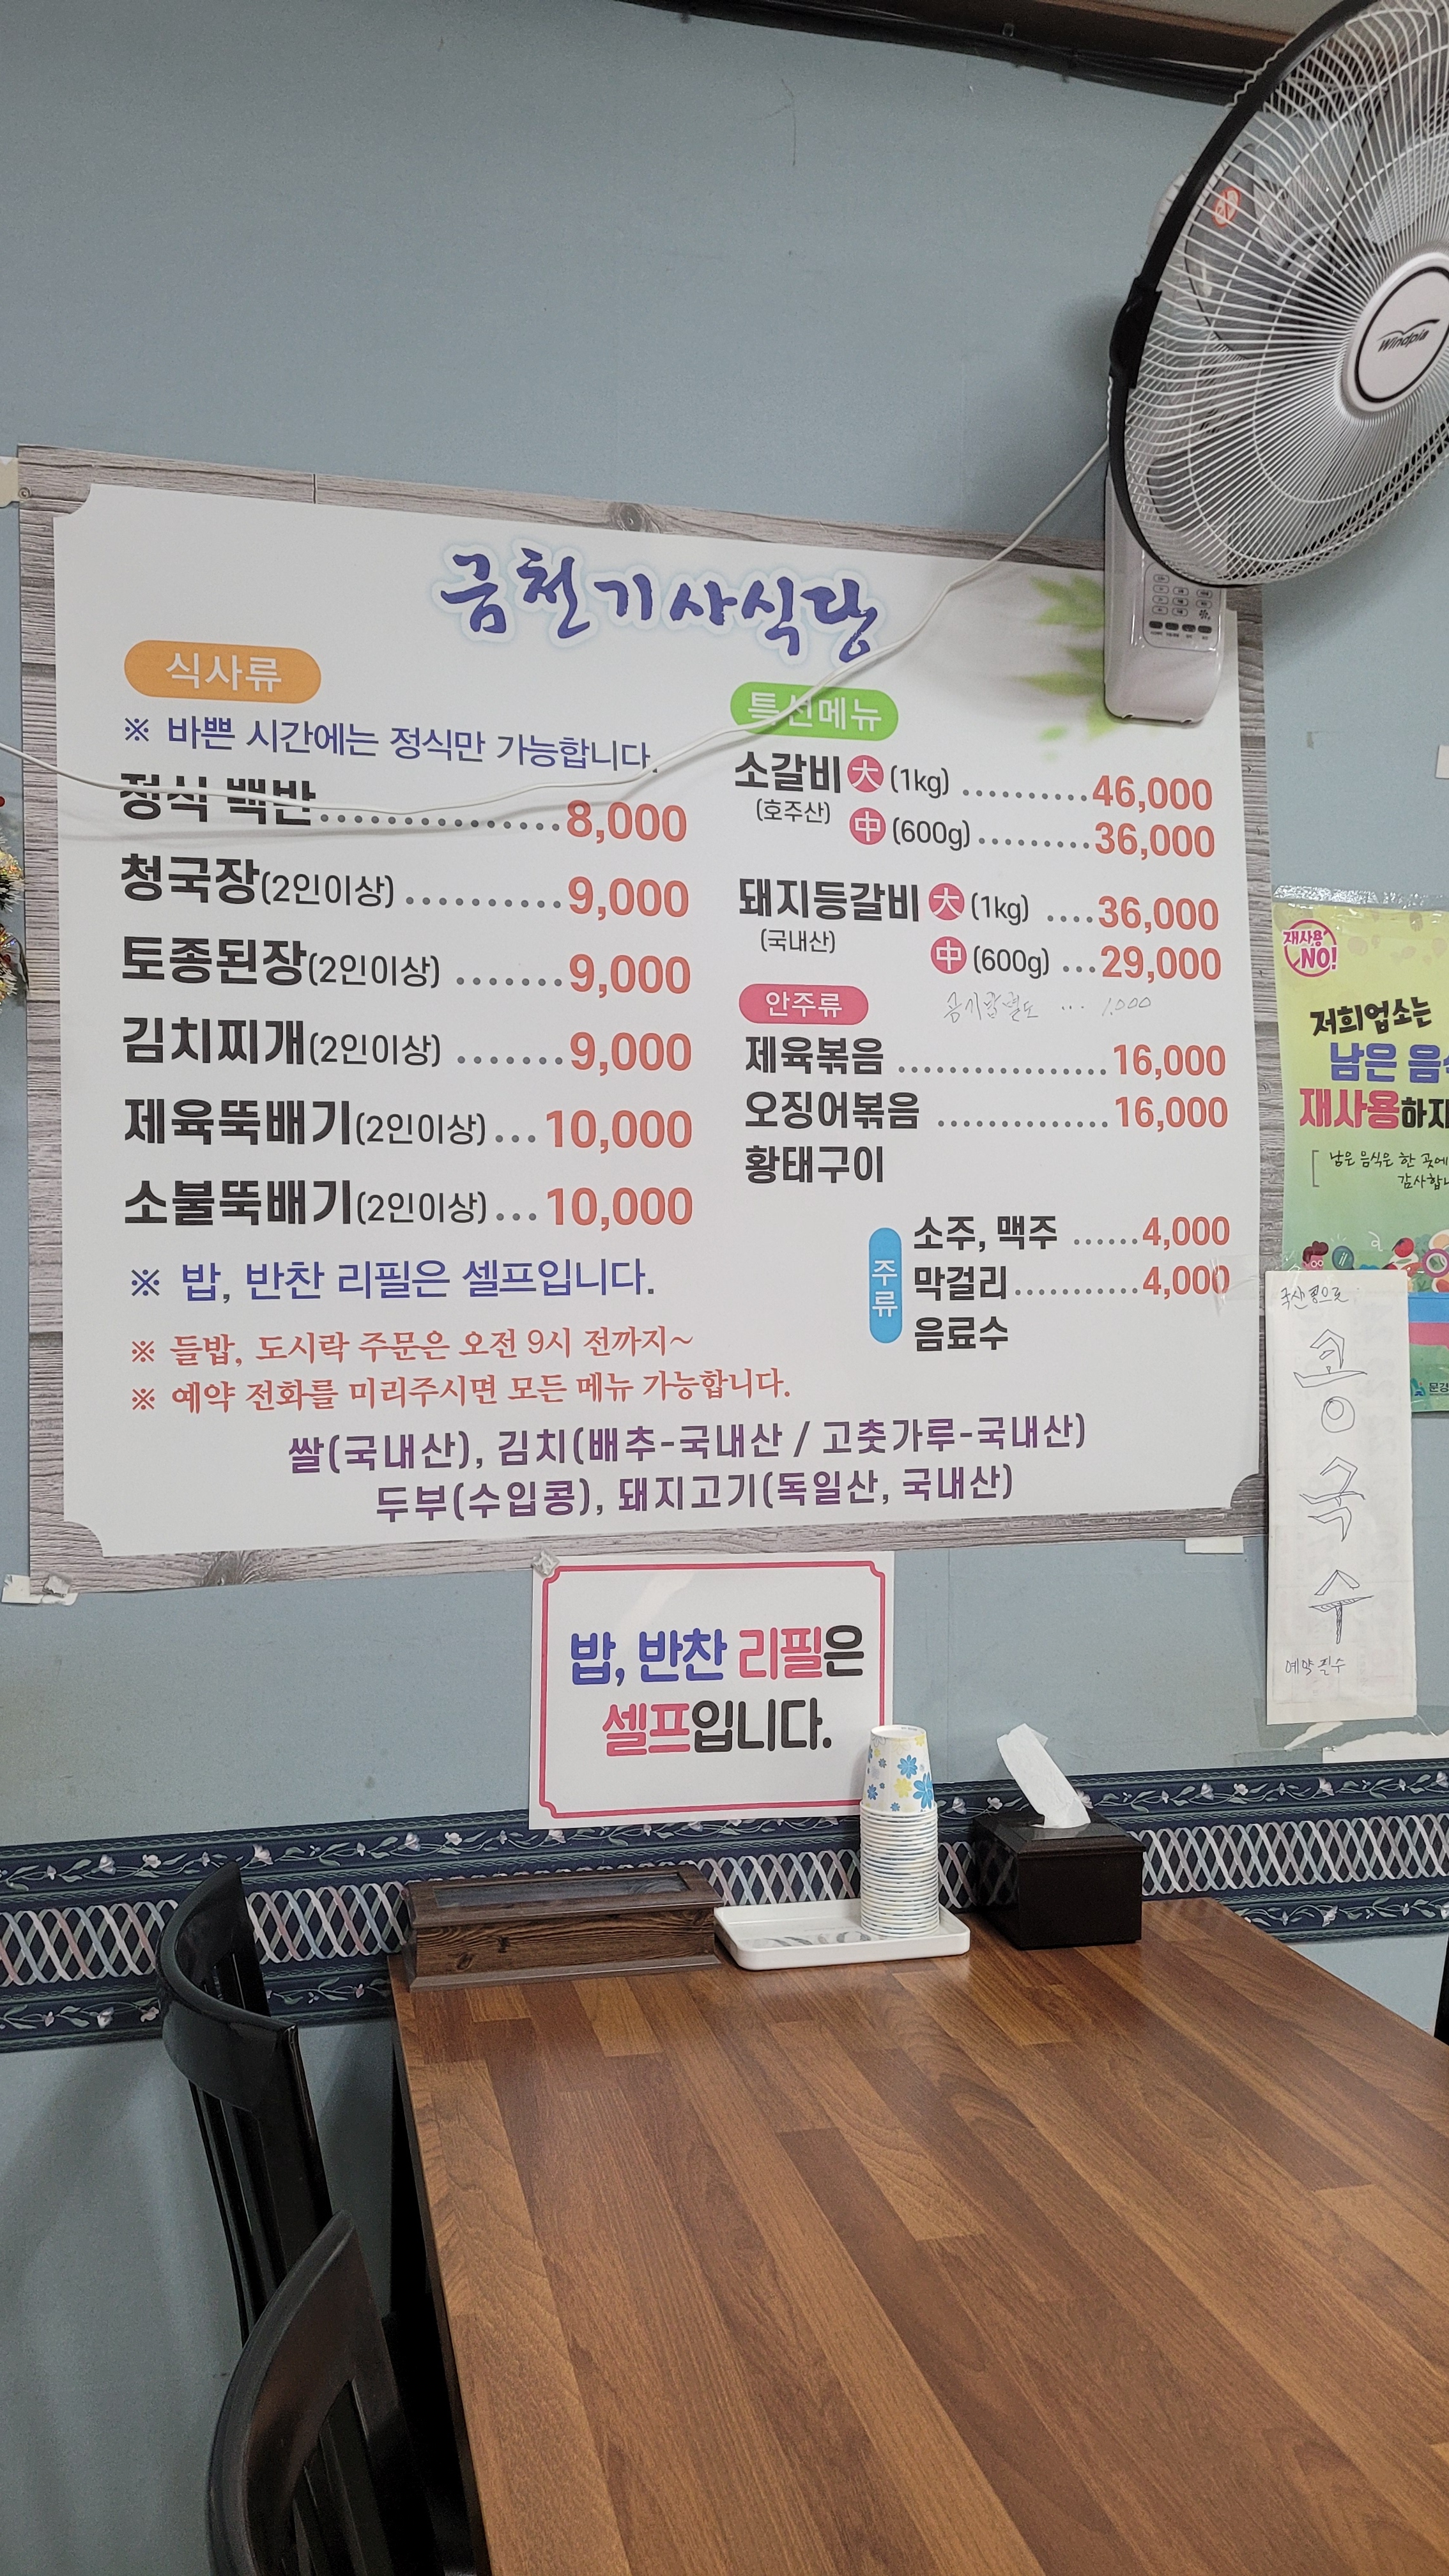 금천기사식당
식사류
※ 바쁜 시간에는 정식만 가능합니다.
정식 백반..............8,000
청국장(2인이상)..........9,000
토종된장(2인이상).......9,000
김치찌개(2인이상).......9,000
제육뚝배기(2인이상)...10,000
소불뚝배기(2인이상)...10,000
※ 밥, 반찬 리필은 셀프입니다.
※ 들밥, 도시락 주문은 오전 9시 전까지~
※ 예약 전화를 미리주시면 모든 메뉴 가능합니다.
특선메뉴
소갈비 大 (1kg) ..........46,000
(호주산) 中 (600g).........36,000
돼지등갈비 大 (1kg) ....36,000
(국내산) 中 (600g) ...29,000
공기밥별도 ... 1,000
안주류
제육볶음..................16,000
오징어볶음...............16,000
황태구이
주류
소주, 맥주......4,000
막걸리...........4,000
음료수
쌀(국내산), 김치(배추-국내산 / 고춧가루-국내산)
두부(수입콩), 돼지고기(독일산, 국내산)
밥, 반찬 리필은
셀프입니다.
Windpia
재사용
NO!
저희업소는
남은
재사용하지
남은 음식은 한 곳에
문경
국산콩으로
콩국수
예약필수